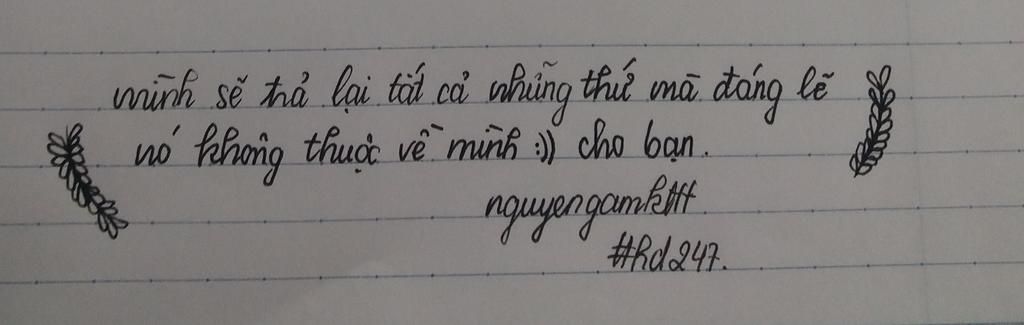 mình sẽ trả lại tất cả những thứ mà đáng lẽ
nó không thuộc về mình :)) cho bạn.
#hd247.